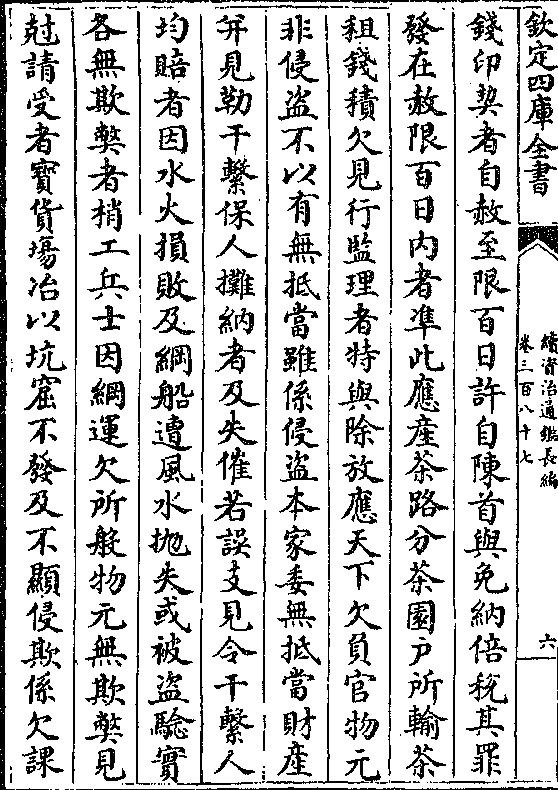 欽定四庫全書
續資治通鑑長編
卷三百八十七
六
錢印契者自赦至限百日許自陳首與免納倍稅其罪
發在赦限百日內者凖此應産茶路分茶園戸所輸茶
租錢積欠見行監理者特與除放應天下欠負官物元
非侵盜不以有無抵當雖係侵盜本家委無抵當財産
并見勒干繫保人攤納者及失催若誤支見令干繫人
均賠者因水火損敗及綱船遭風水抛失或被盜驗實
各無欺弊者梢工兵士因綱運欠所般物元無欺弊見
尅請受者寶貨塲冶以坑窟不發及不顯侵欺係欠課